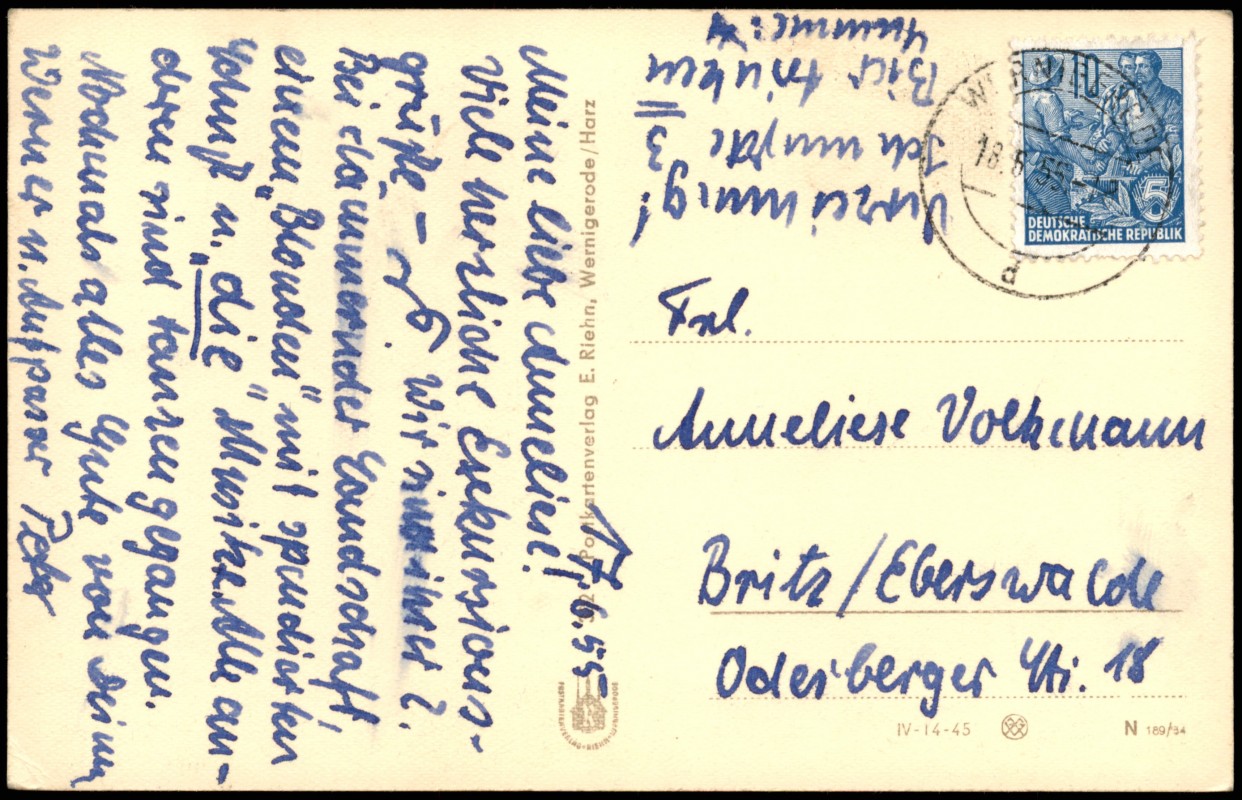 17.6.55
Meine liebe Anneliese!
Viele herzliche Exkursions-
grüße – Wir
Bei dämmernder Landschaft,
einem „Blonden" mit spendierten
u. „die" Musik. Alle an-
deren sind tanzen gegangen.
Nochmals alles Gute von Deinem
Werner u. Aufpasser Peter
Verzeihung!
Ich musste 3
Bier trinken
Postkartenverlag E. Riehn, Wernigerode/Harz
POSTKARTENVERLAG · RIEHN · WERNIGERODE
10
5
DEUTSCHE
DEMOKRATISCHE REPUBLIK
WERNIGERODE
18.6.55
d
Frl.
Anneliese Volkmann
Britz/Eberswalde
Oderberger Str. 18
IV-14-45
N 189/54